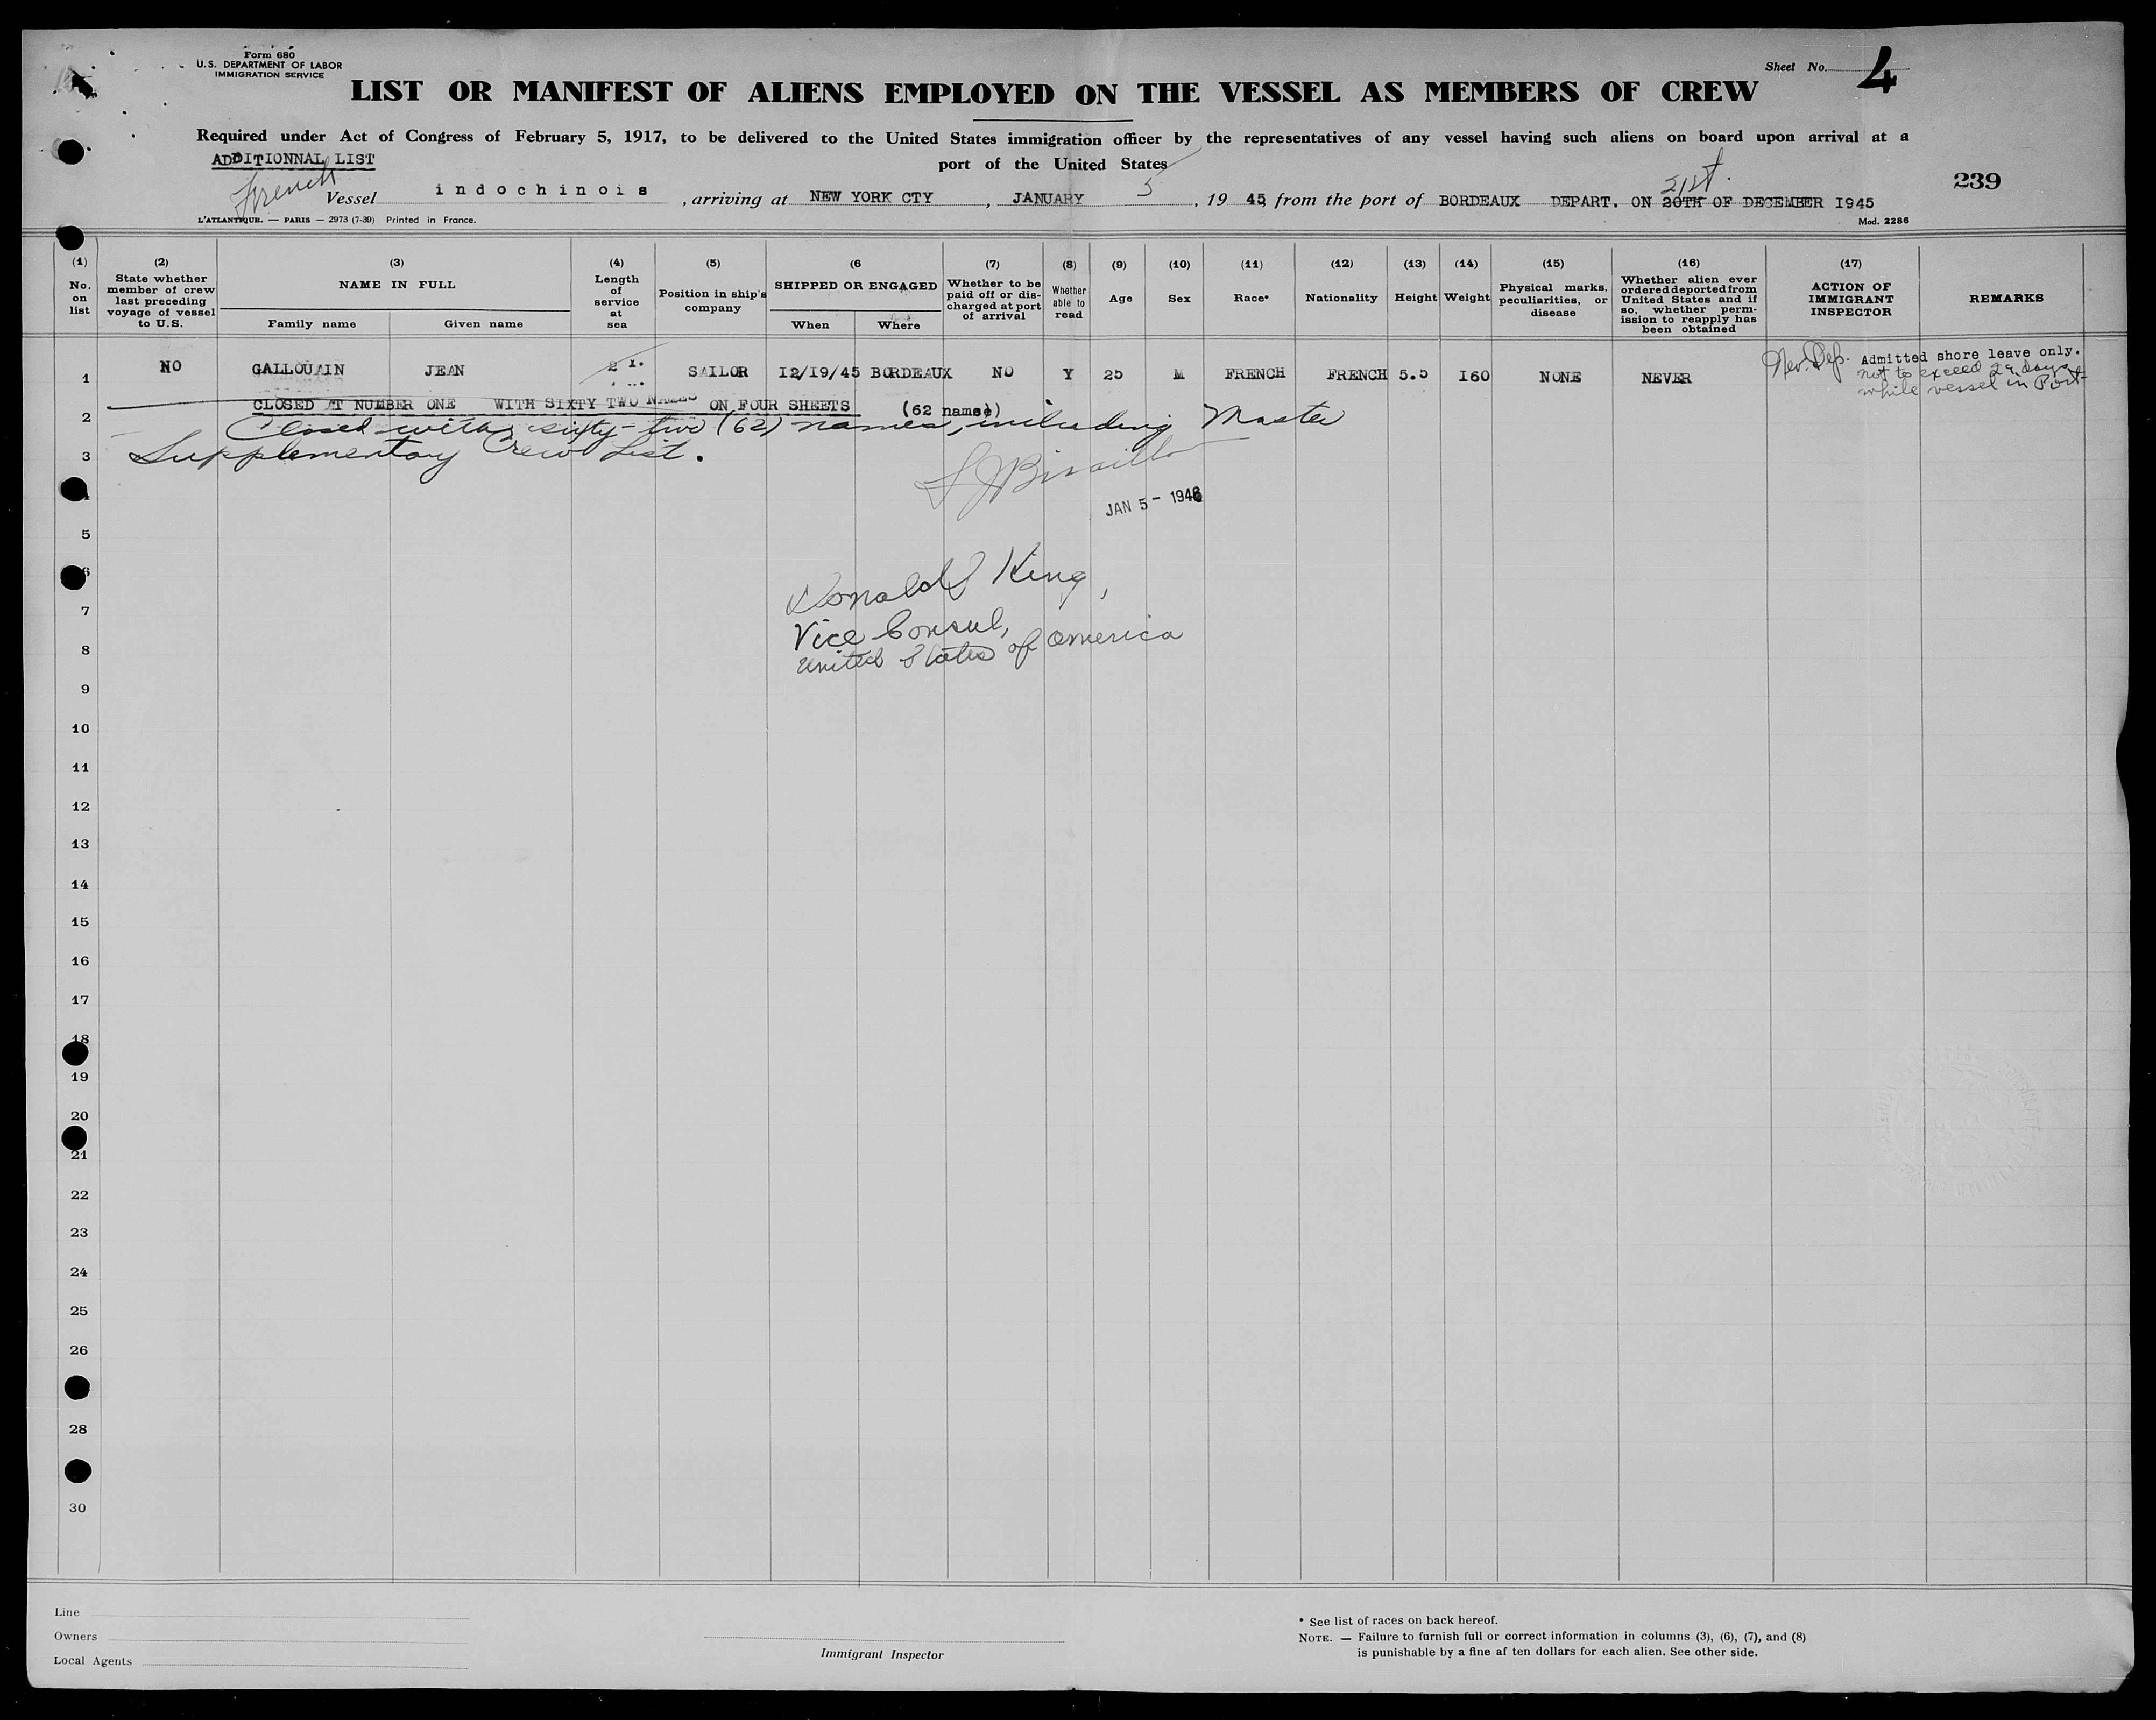 Form 680
U.S. DEPARTMENT OF LABOR
IMMIGRATION SERVICE
Sheet No. 4
LIST OR MANIFEST OF ALIENS EMPLOYED ON THE VESSEL AS MEMBERS OF CREW
Required under Act of Congress of February 5, 1917, to be delivered to the United States immigration officer by the representatives of any vessel having such aliens on board upon arrival at a
port of the United States
ADDITIONNAL LIST
239
French Vessel indochinois, arriving at NEW YORK CTY, JANUARY 5, 19 45, from the port of BORDEAUX DEPART. ON 20TH OF DECEMBER I945
21st.
L'ATLANTIQUE. — PARIS — 2973 (7-39) Printed in France.
Mod. 2286
(1) No. on list
(2) State whether member of crew last preceding voyage of vessel to U.S.
(3) NAME IN FULL
Family name Given name
(4) Length of service at sea
(5) Position in ship's company
(6 SHIPPED OR ENGAGED
When Where
(7) Whether to be paid off or dis-charged at port of arrival
(8) Whether able to read
(9) Age
(10) Sex
(11) Race*
(12) Nationality
(13) Height
(14) Weight
(15) Physical marks, peculiarities, or disease
(16) Whether alien ever ordered deported from United States and if so, whether perm-ission to reapply has been obtained
(17) ACTION OF IMMIGRANT INSPECTOR
REMARKS
1 NO GALLOUAIN JEAN 2 SAILOR I2/I9/45 BORDEAUX NO Y 25 M FRENCH FRENCH 5.5 I60 NONE NEVER
Nev. Dep. Admitted shore leave only.
not to exceed 29 days
while vessel in Port
CLOSED AT NUMBER ONE WITH SIXTY TWO NAMES ON FOUR SHEETS (62 names)
2 Closed with sixty-two (62) names, including Master
3 Supplementary Crew List.
JAN 5 - 1946
5
6
Donald King,
7
Vice Consul,
8
United States of America
9
10
11
12
13
14
15
16
17
18
19
20
21
22
23
24
25
26
28
30
Line
Owners
Local Agents
Immigrant Inspector
* See list of races on back hereof.
NOTE. — Failure to furnish full or correct information in columns (3), (6), (7), and (8)
is punishable by a fine af ten dollars for each alien. See other side.